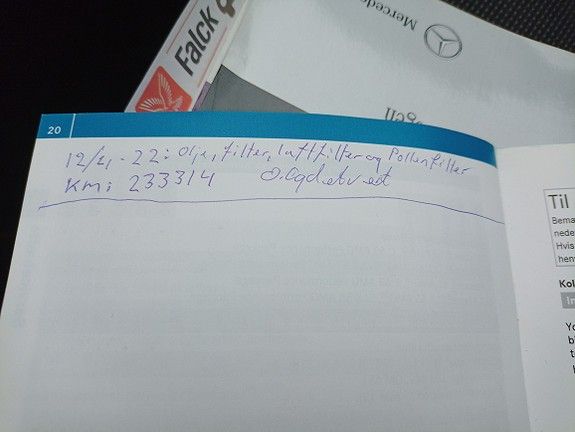 Falck
Mercede
20
12/4-22: Olje, filter, luftfilter og Pollenfilter
Km: 233314
Til
Bema
nede
Hvis
hen
Kol
Yo
b
t